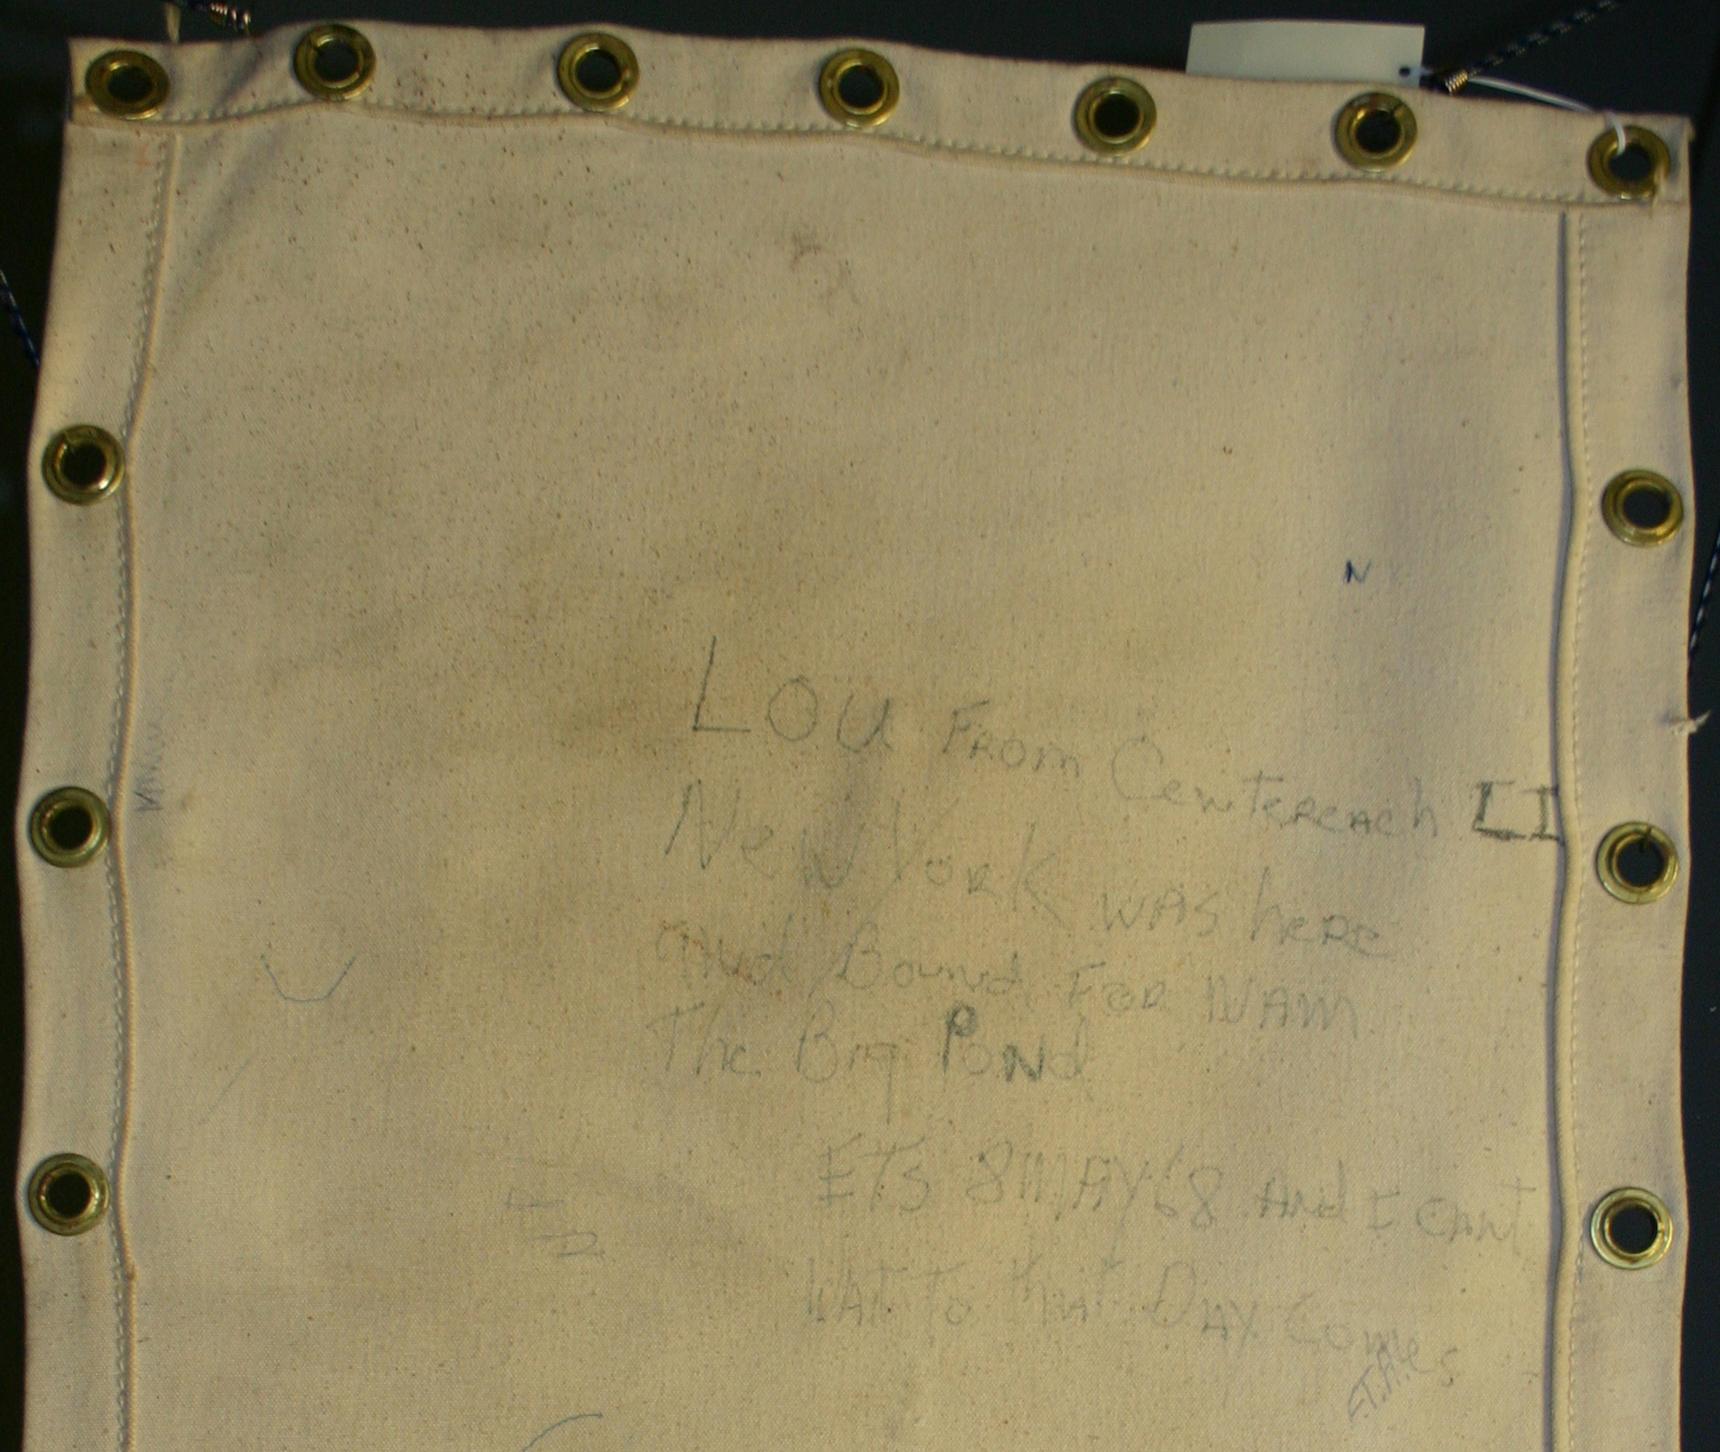 N
LOU From Centereach LI
New York was here
And Bound For NAM
The Big Pond
ETS 8 MAY 68 And I Cant
Wat To that DAY Comes